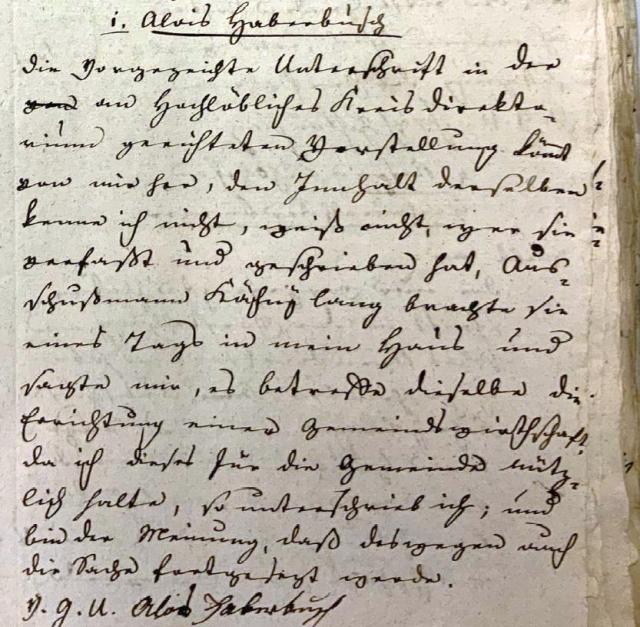 i. Alois Haberbusch
die Vorgezeichte Unterschrift in der
an Hochlöbliches Kreis direkto-
rium gerichteten Vorstellung kömt
von mir her, den Innhalt derselben
kenne ich nicht, weiß nicht, wer sie
verfaßt und geschrieben hat, Aus-
schußmann lang brachte sie
eines Tags in mein Haus und
sagte mir, es betreffe dieselbe die
Errichtung einer Gemeindswirthschaft,
da ich dieses für die Gemeinde nütz-
lich halte, so unterschrieb ich; und
bin der Meinung, daß deswegen auch
die Sache fortgesezt werde.
V. G. U. Alois Haberbusch